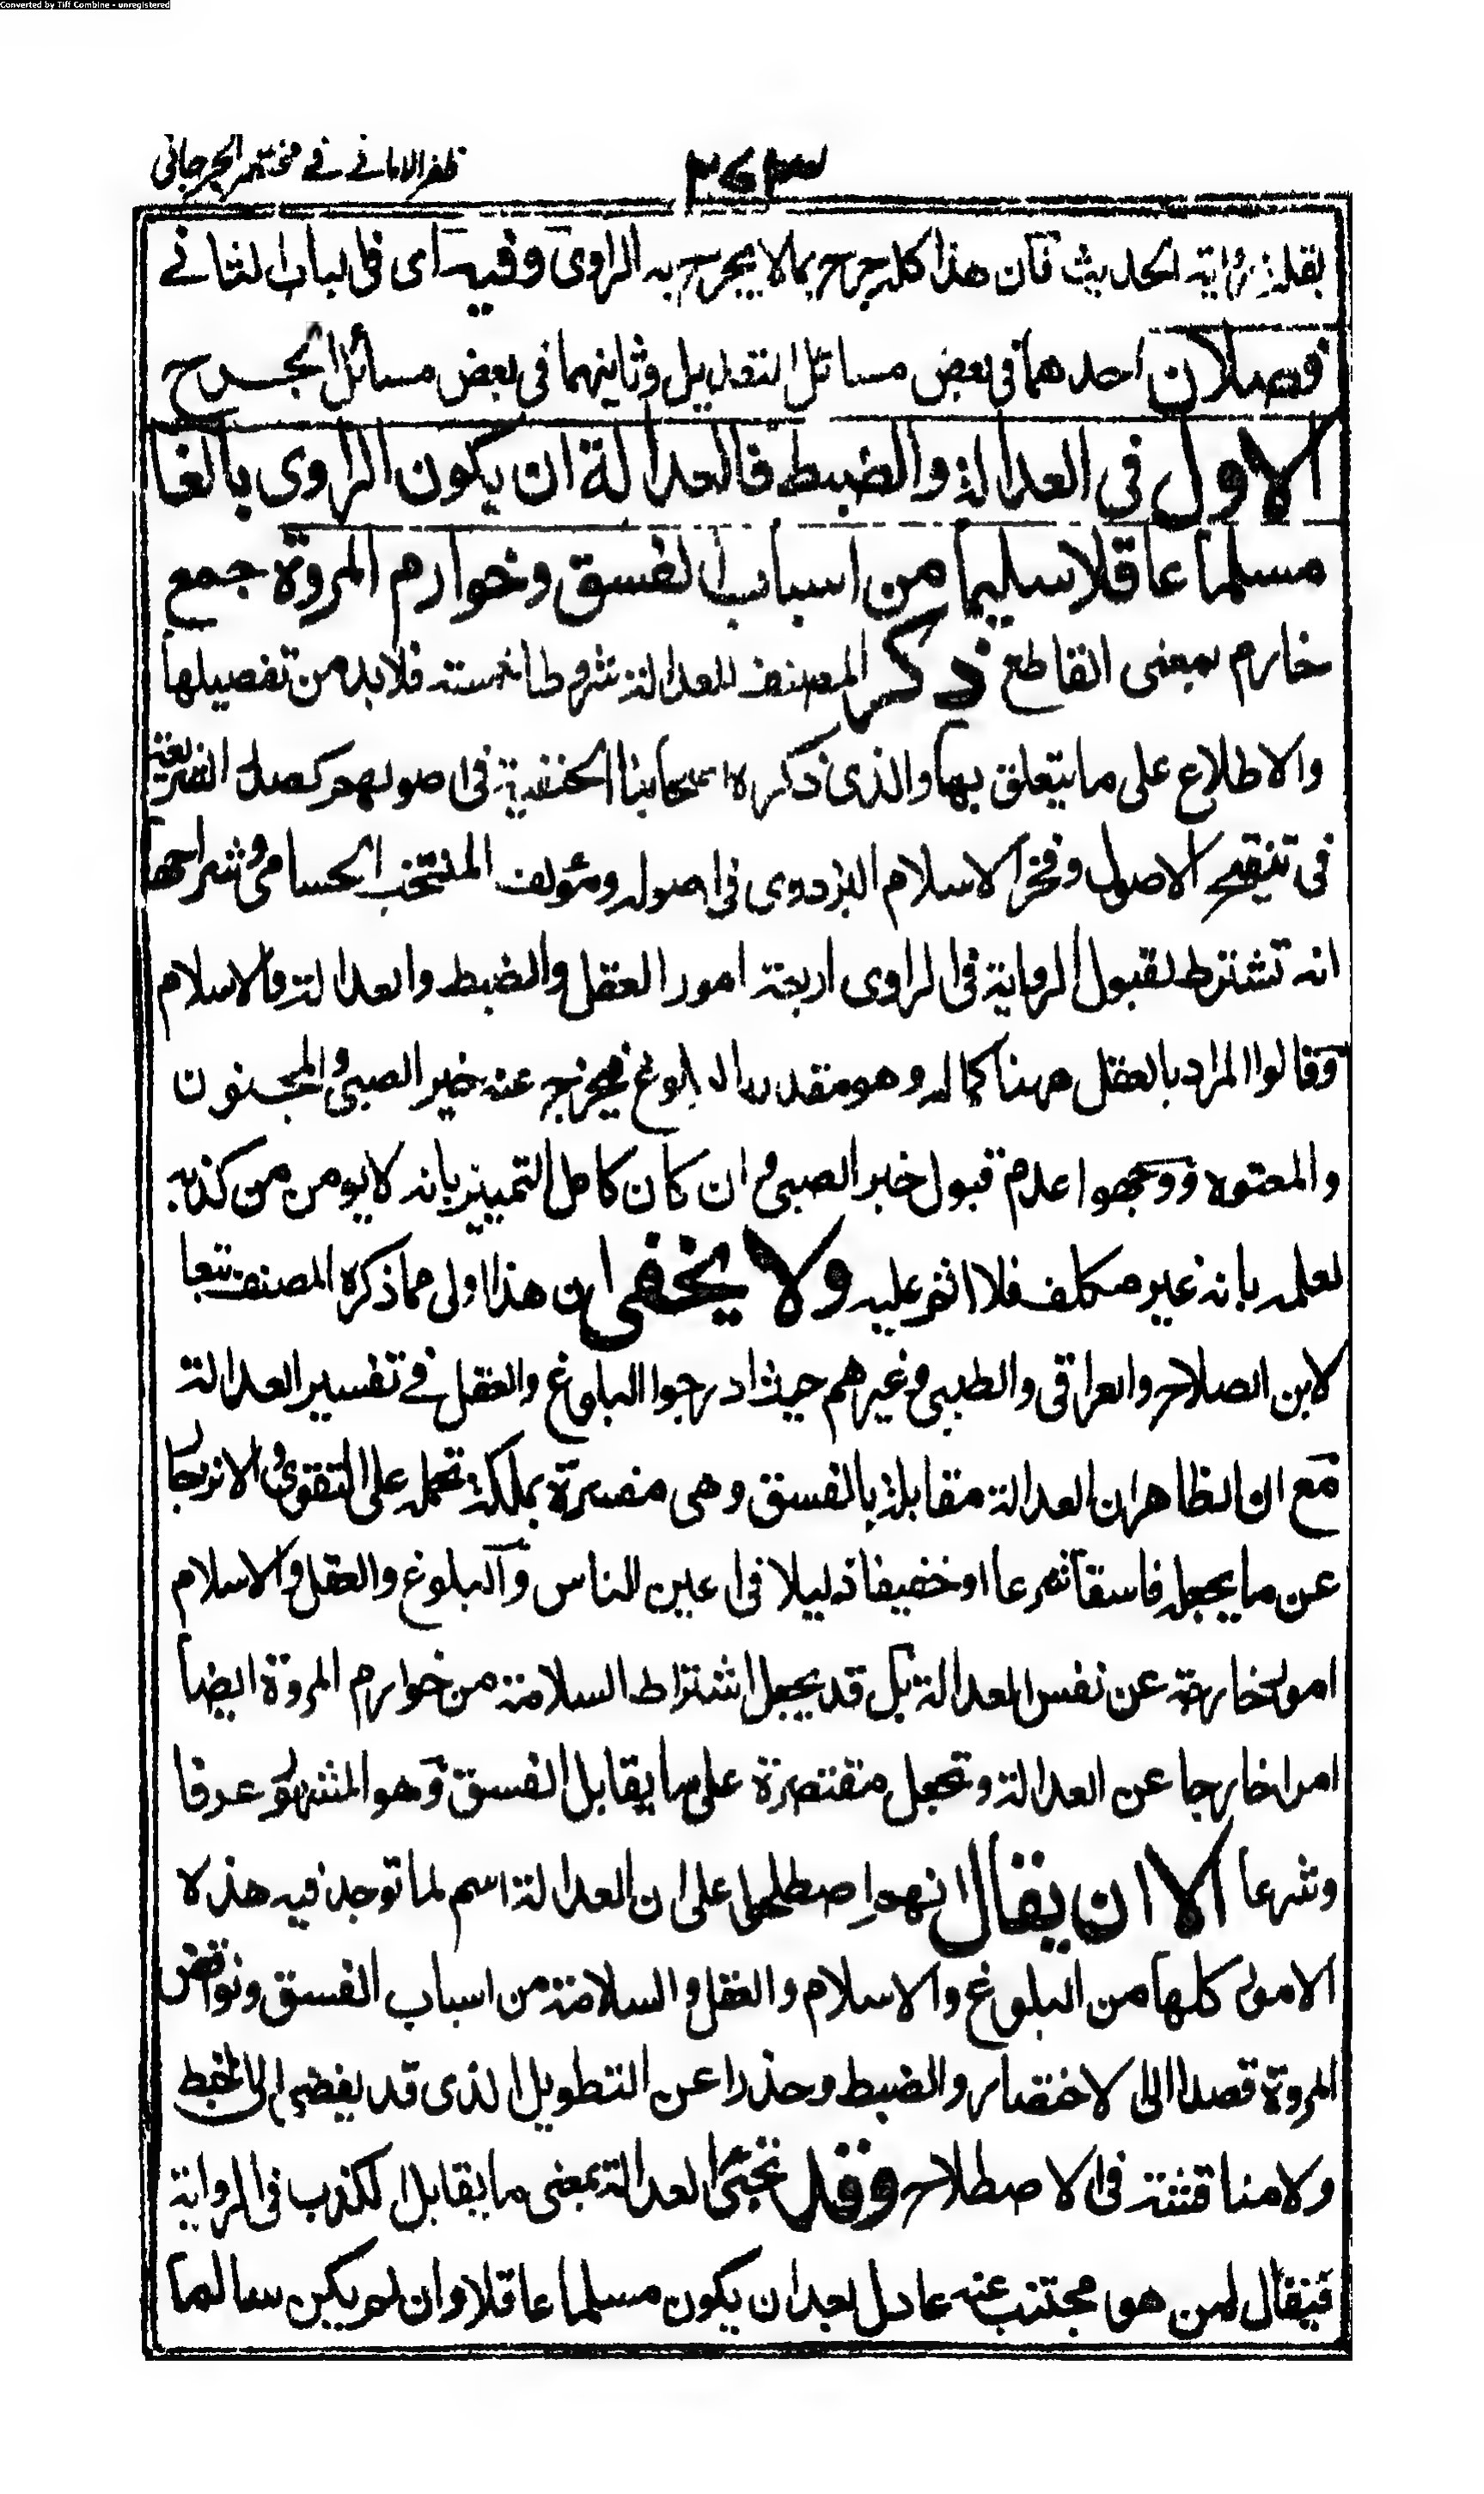 Converted by Tiff Combine - unregistered
ظفر الامانے فے مختصر الجرجانی
٢٦٣
بقلة رواية الحديث فان هذا كله جرح بما لا يجرح به الراوی وفيه ای فی الباب الثانے
فصلان احدهما فی بعض مسائل التعديل وثانيهما فی بعض مسائل الجرح
الاول فی العدالة والضبط فالعدالة ان يكون الراوی بالغا
مسلما عاقلا سليما من اسباب الفسق وخوارم المروة جمع
خارم بمعنی القاطع ذكر المصنف للعدالة شروطا خمسة فلابد من تفصيلها
والاطلاع علی ما يتعلق بها والذی ذكره اصحابنا الحنفية فی اصولهم كصدر الشريعة
فی تنقيح الاصول وفخر الاسلام البزدوی فی اصوله ومؤلف المنتخب الحسامی وشراحها
انه تشترط لقبول الرواية فی الراوی اربعة امور العقل والضبط والعدالة والاسلام
وقالوا المراد بالعقل ههنا كماله وهو مقدر بالبلوغ فيخرج عنه خبر الصبی والمجنون
والمعتوه ووجهوا عدم قبول خبر الصبی وان كان كامل التمييز بانه لا يومن من كذبه
لعلمه بانه غير مكلف فلا اثم عليه ولا يخفی ان هذا اولی مما ذكره المصنف تبعا
لابن الصلاح والعراقی والطيبی وغيرهم حيث ادرجوا البلوغ والعقل فے تفسير العدالة
مع ان الظاهر ان العدالة مقابلة بالفسق وهی مفسرة بملكة تحمله علی التقوی والانزجار
عن ما يجعله فاسقا شرعا او خفيفا ذليلا فی اعين الناس والبلوغ والعقل والاسلام
امور خارجة عن نفس العدالة بل قد يجعل اشتراط السلامة من خوارم المروة ايضا
امرا خارجا عن العدالة وتجعل مقتصرة علی ما يقابل الفسق وهو المشهور عرفا
وشرعا الا ان يقال انهم اصطلحوا علی ان العدالة اسم لما توجد فيه هذه
الامور كلها من البلوغ والاسلام والعقل والسلامة من اسباب الفسق ونواقض
المروة قصدا الی الاختصار والضبط وحذرا عن التطويل الذی قد يفضی الی الخبط
ولا مناقشة فی الاصطلاح وقد تجئ العدالة بمعنی ما يقابل الكذب فی الرواية
فيقال لمن هو مجتنب عنه عادل بعد ان يكون مسلما عاقلا وان لم يكن سالما